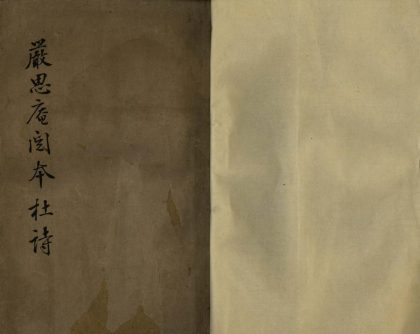 嚴思庵閱本杜詩